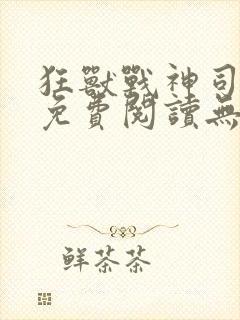 狂獸戰神司
免費閱讀無
鮮茶茶